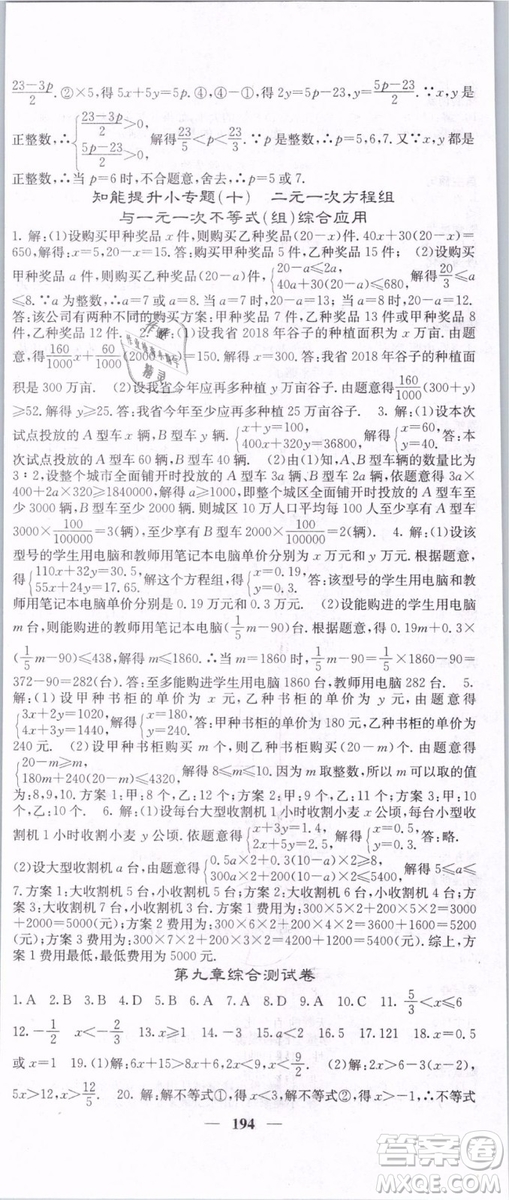 23-3p/2. ②×5,得 5x+5y=5p. ④,④-①,得 2y=5p-23,y=5p-23/2. ∵x,y 是
正整数,∴{23-3p/2>0, 5p-23/2>0, 解得 23/5<p<23/3. ∵p 是整数,∴p=5,6,7. 又∵x,y 是
正整数,∴当 p=6 时,不合题意,舍去. ∴p=5 或 7.
知能提升小专题(十) 二元一次方程组
与一元一次不等式(组)综合应用
1. 解:(1)设购买甲种奖品 x 件,则购买乙种奖品(20-x)件. 40x+30(20-x)=
650,解得:x=5,20-x=15. 答:购买甲种奖品 5 件,乙种奖品 15 件;(2)设购买
甲种奖品 a 件,则购买乙种奖品(20-a)件,{20-a≤2a, 40a+30(20-a)≤680, 解得 20/3≤a
≤8. ∵a 为整数,∴a=7 或 a=8. 当 a=7 时,20-a=13;当 a=8 时,20-a=12.
答:该公司有两种不同的购买方案:甲种奖品 7 件,乙种奖品 13 件或甲种奖品 8
件,乙种奖品 12 件. 2. 解:(1)设我省 2018 年谷子的种植面积为 x 万亩. 由题
意,得 160/1000x+60/1000(2000-x)=150. 解得 x=300. 答:我省 2018 年谷子的种植面
积是 300 万亩. (2)设我省今年应再多种植 y 万亩谷子. 由题意,得
≥52. 解得 y≥25. 答:我省今年至少应再多种植 25 万亩谷子. 3. 解:(1)设本次
试点投放的 A 型车 x 辆,B 型车 y 辆,{x+y=100, 400x+320y=36800, 解得{x=60, y=40. 答:本
次试点投放的 A 型车 60 辆,B 型车 40 辆. (2)由(1)知,A、B 型车辆的数量比为
3∶2,设整个城市全面铺开时投放的 A 型车 3a 辆,B 型车 2a 辆,依题意得 3a
×400+2a×320≥1840000,解得 a≥1000,即整个城区全面铺开时投放的 A 型车
至少 3000 辆,B 型车至少 2000 辆,则城区 10 万人口平均每 100 人至少享有 A 型车
3000×100/100000=3(辆),至少享有 B 型车 2000×100/100000=2(辆). 4. 解:(1)设该
型号的学生用电脑和教师用笔记本电脑单价分别为 x 万元,y 万元. 根据题意,
得:{110x+32y=30.5, 55x+24y=17.65. 解这个方程组,得{x=0.19, y=0.3. 答:该型号的学生用电脑和教
师用笔记本电脑单价分别是 0.19 万元和 0.3 万元. (2)设能购进的学生用电脑
m 台,则能购进的教师用笔记本电脑(1/5m-90)台. 根据题意,得 0.19m+0.3×
(1/5m-90)≤438,解得:m≤1860. 当 m=1860 时,1/5m-90=1/5×1860-90=
372-90=282(台). 答:至多能购进学生用电脑 1860 台,教师用电脑 282 台. 5.
解:(1)设甲种书柜的单价为 x 元,乙种书柜的单价为 y 元,依题意得:
{3x+2y=1020, 4x+3y=1440, 解得:{x=180, y=240. 答:甲种书柜的单价为 180 元,乙种书柜的单价为
240 元. (2)设甲种书柜购买 m 个,则乙种书柜购买(20-m)个,依题意得:
{20-m≥m, 180m+240(20-m)≤4320. 解得:8≤m≤10. 因为 m 取整数,所以 m 可以取的值
为:8,9,10. 方案 1:甲:8 个,乙:12 个;方案 2:甲:9 个,乙:11 个;方案 3:甲:10
个,乙:10 个. 6. 解:(1)设每台大型收割机 1 小时收割小麦 x 公顷,每台小型收
割机 1 小时收割小麦 y 公顷. 依题意得{x+3y=1.4, 2x+5y=2.5, 解得{x=0.5, y=0.3. 答:略.
(2)设大型收割机 a 台,依题意得{0.5a×2+0.3(10-a)×2≥8, 300a×2+200(10-a)×2≤5400. 解得 5≤a≤
7. 方案 1:大收割机 5 台,小收割机 5 台;方案 2:大收割机 6 台,小收割机 4 台;方
案 3:大收割机 7 台,小收割机 3 台. 方案 1 费用为:300×5×2+200×5×2=3000
+2000=5000(元);方案 2 费用为:300×6×2+200×4×2=3600+1600=5200
(元);方案 3 费用为:300×7×2+200×3×2=4200+1200=5400(元). 综上,方
案 1 费用最低,最低费用为 5000 元.
第九章综合测试卷
1.A 2.A 3.B 4.C 5.A 6.A 7.C 8.B 9.D 10.B 11. 5/3<x≤6
12. -1/2 x<-2/3 13. x≥1 14. a<2 15. a<4 16.2 17.121 18. x=0
或 x=1 19.(1)解:6x+15>8x+6,-2x>-9,x<9/2. (2)解:2x>6-3(x-2),
5x>12,x>12/5. 20. 解:解不等式①,得 x>-1,解不等式②,得 x≤1,∴不等式
194
答案圈